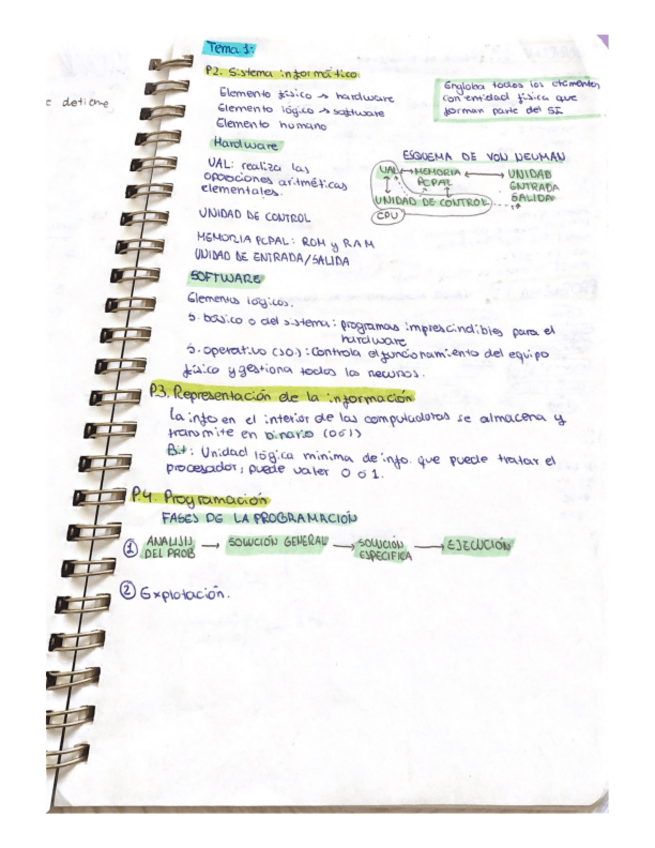 e detiene
Tema 1:
P2. Sistema informático
Elemento físico → hardware
Elemento lógico → software
Elemento humano
Engloba todos los elementos
con entidad física que
forman parte del SI
Hardware
UAL: realiza las
operaciones aritméticas
elementales.
UNIDAD DE CONTROL
MEMORIA PCPAL: ROM y RAM
UNIDAD DE ENTRADA/SALIDA
ESQUEMA DE VON NEUMAN
UAL ↔ MEMORIA ↔ UNIDAD
PCPAL ENTRADA
UNIDAD DE CONTROL SALIDA
CPU
SOFTWARE
Elementos lógicos.
S. básico o del sistema: programas imprescindibles para el
hardware
S. operativo (SO): Controla el funcionamiento del equipo
físico y gestiona todos los recursos.
P.3. Representación de la información
La info en el interior de las computadoras se almacena y
transmite en binario (0 ó 1)
Bit: Unidad lógica mínima de info. que puede tratar el
procesador, puede valer 0 ó 1.
P.4. Programación
FASES DE LA PROGRAMACIÓN
① ANALISIS → SOLUCIÓN GENERAL → SOLUCIÓN → EJECUCIÓN
DEL PROB ESPECIFICA
② Explotación.